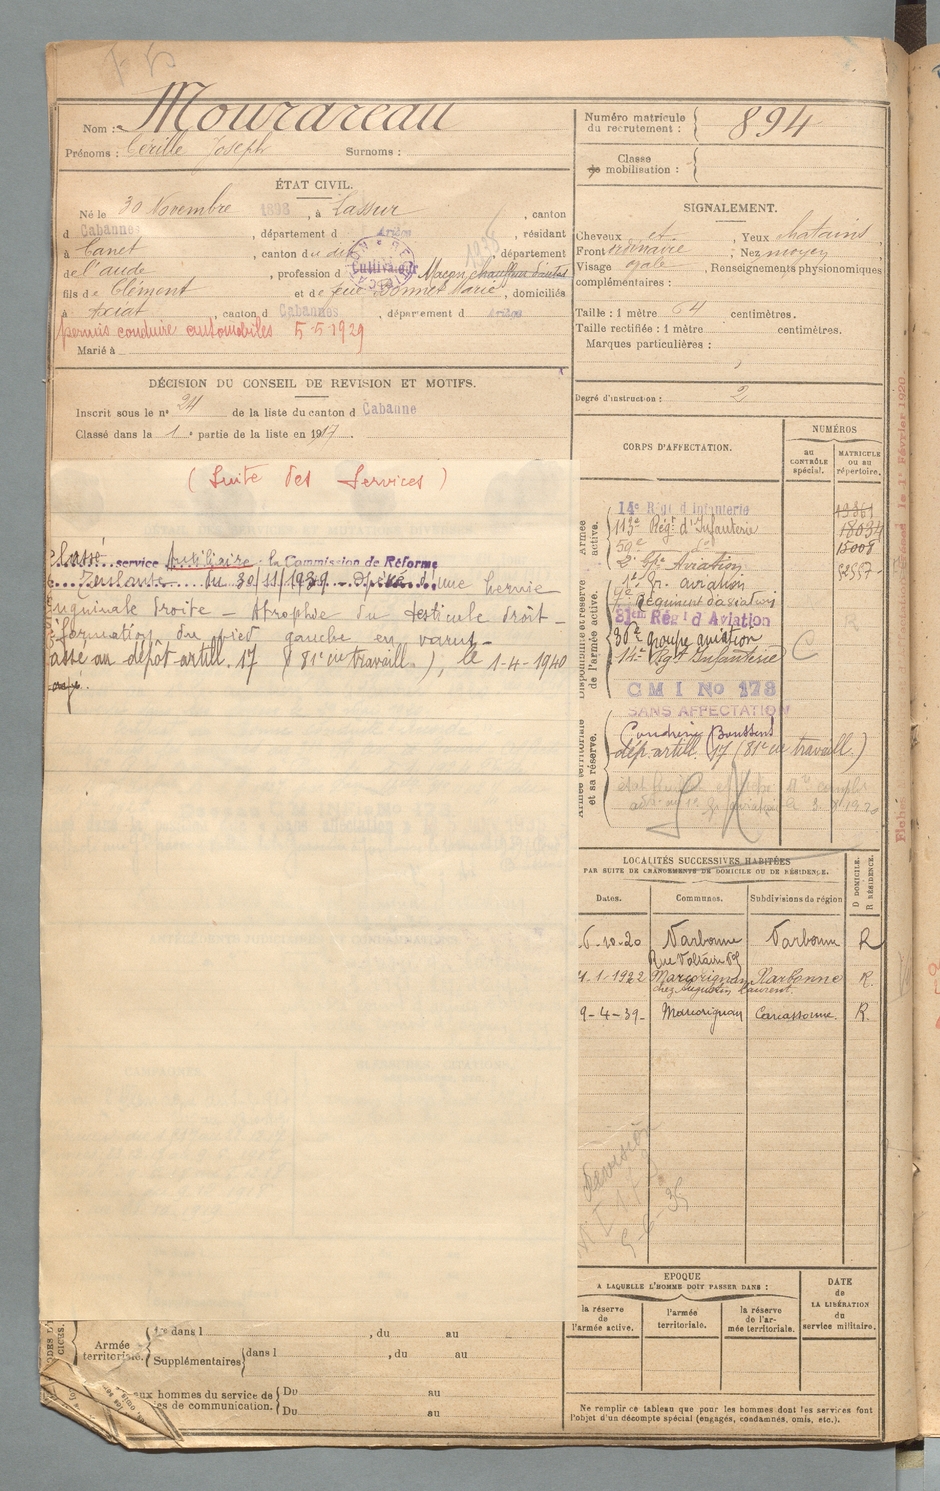 Nom : Mourareau
Prénoms : Cérille Joseph Surnoms :
Numéro matricule du recrutement : 894
Classe de mobilisation :
ÉTAT CIVIL.
Né le 30 Novembre 1898, à Lassur, canton
d Cabannes, département d Ariège, résidant
à Canet, canton d u dit, département
de l'aude, profession d Cultivateur Maçon chauffeur d'autos
fils de Clément et de feue Bonnet Marie, domiciliés
à Axiat, canton d Cabannes, département d Ariège
permis conduire automobiles 5-5-1929
Marié à
SIGNALEMENT.
Cheveux et, Yeux chatains
Front ordinaire; Nez moyen
Visage ovale, Renseignements physionomiques
complémentaires :
Taille : 1 mètre 64 centimètres.
Taille rectifiée : 1 mètre centimètres.
Marques particulières :
Degré d'instruction : 2
DÉCISION DU CONSEIL DE REVISION ET MOTIFS.
Inscrit sous le n° 24 de la liste du canton d Cabanne
Classé dans la 1e partie de la liste en 1917.
(Suite des Services)
Classé service Auxiliaire : la Commission de Réforme
Toulouse du 30/11/1939 une hernie
inguinale droite - Atrophie du testicule droit -
formation du pied gauche en varus -
asse au dépôt artill. 17 (81e cie travaill.), le 1-4-1940
CORPS D'AFFECTATION.
NUMÉROS
au CONTRÔLE spécial.
MATRICULE ou au répertoire.
Armée active.
14e Régt d'Infanterie 13361
113e Régt d'Infanterie 18034
50e do 15008
2e Gpe Aviation
Disponibilité et réserve de l'armée active.
1er Gr. aviation
Régiment d'aviation
31me Régt d'Aviation
36e groupe aviation
14e Rgt Infanterie C
C M I No 173
SANS AFFECTATION
Armée territoriale et sa réserve.
dép. artill. 17 (81e cie travaill.)
LOCALITÉS SUCCESSIVES HABITÉES
PAR SUITE DE CHANGEMENTS DE DOMICILE OU DE RÉSIDENCE.
Dates. Communes. Subdivisions de région
D DOMICILE. R RÉSIDENCE.
6-10-20 Narbonne Narbonne R
Rue Voltaire
4-1-1922 Marcorignan Narbonne R.
chez Augustin Laurent.
9-4-39- Marcorignan Carcassonne. R.
Révision
5-6-35
EPOQUE
A LAQUELLE L'HOMME DOIT PASSER DANS :
la réserve de l'armée active.
l'armée territoriale.
la réserve de l'armée territoriale.
DATE de LA LIBÉRATION du service militaire.
Armée territoriale.
1re dans l , du au
Supplémentaires dans l , du au
aux hommes du service de Du au
es de communication. Du au
Ne remplir ce tableau que pour les hommes dont les services font
l'objet d'un décompte spécial (engagés, condamnés, omis, etc.).
le 1er Février 1920